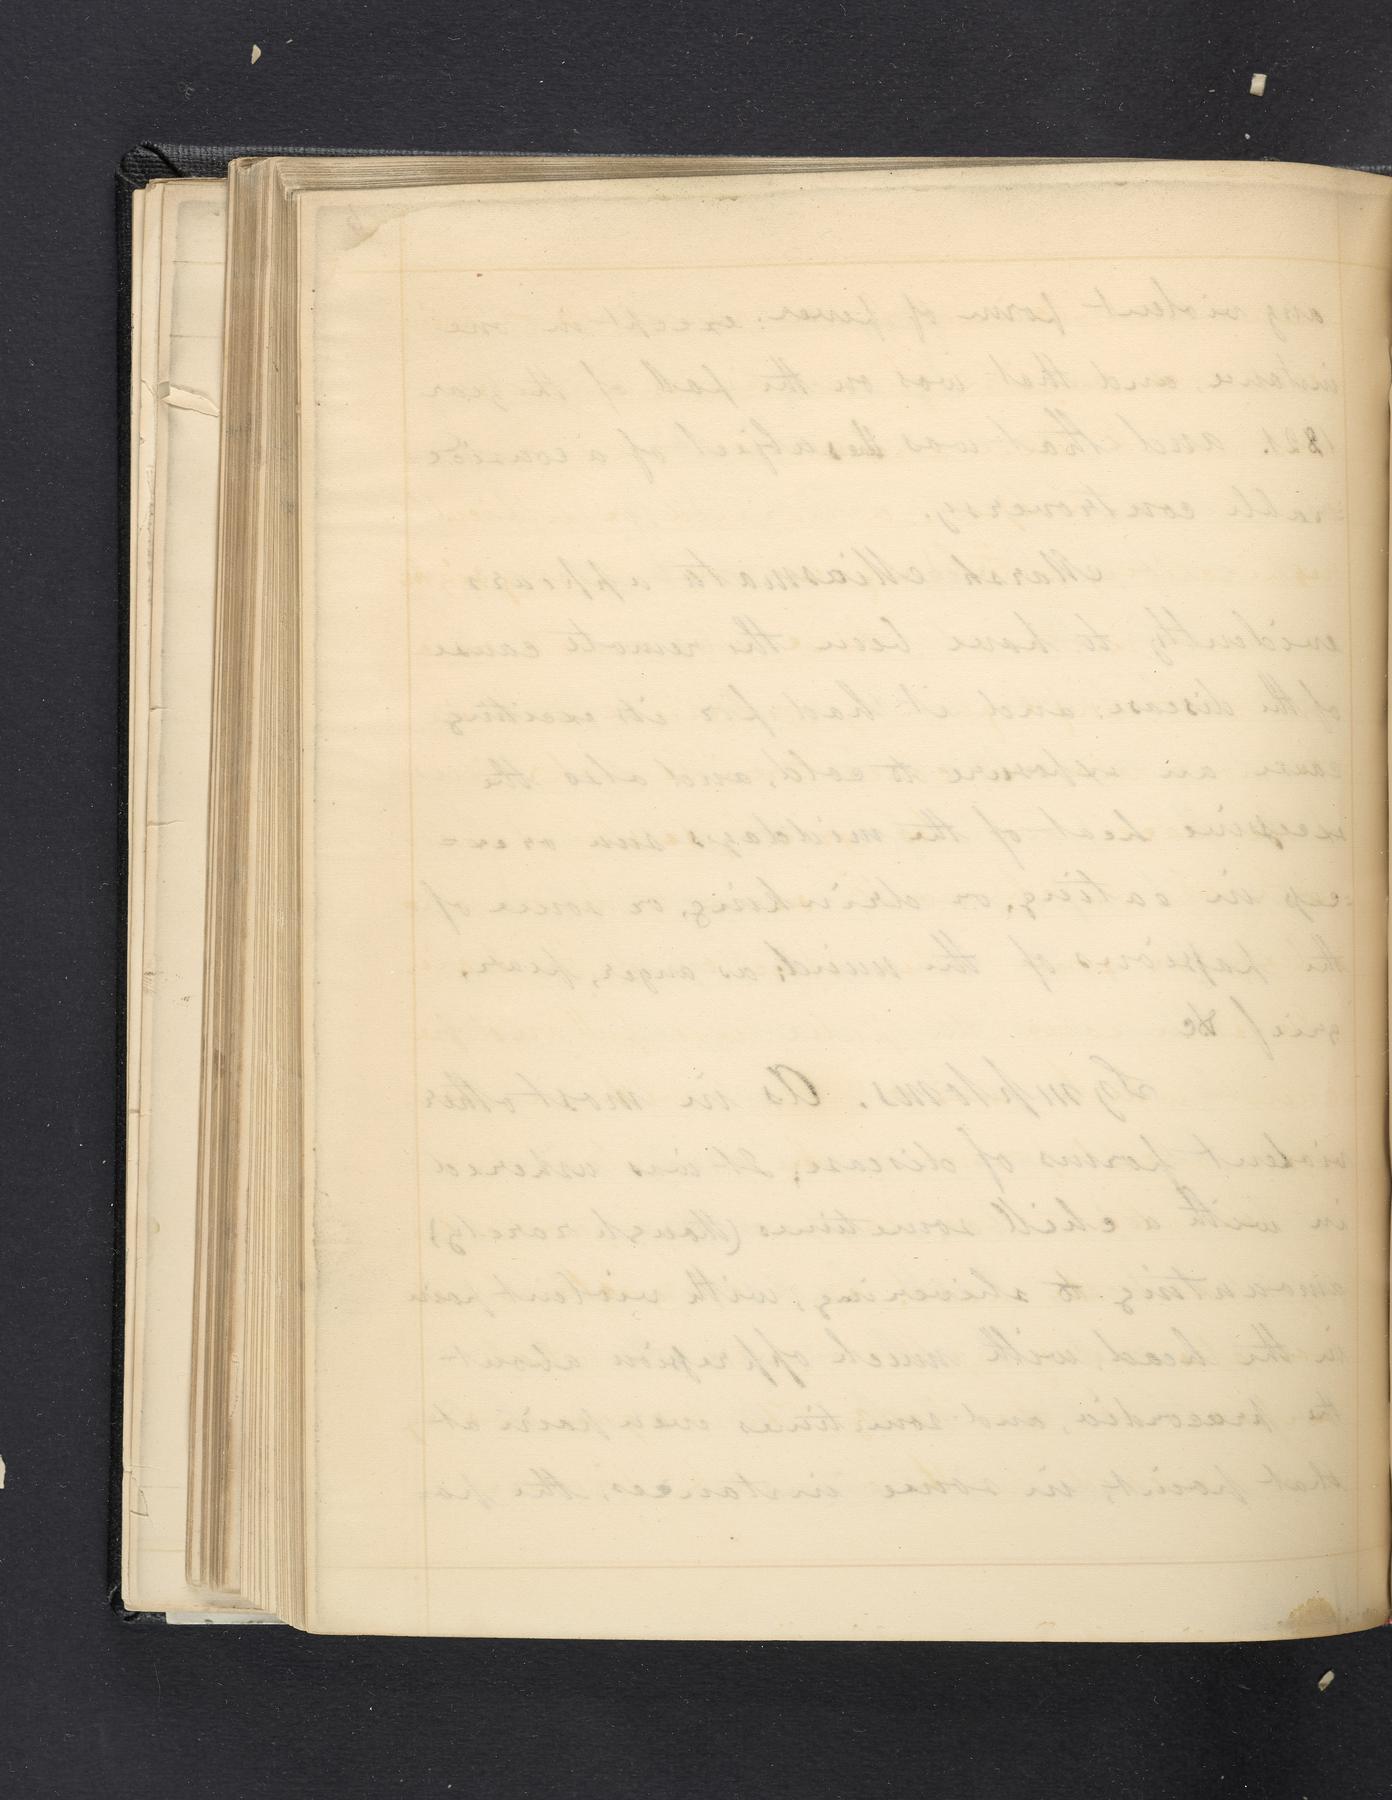 any violent form of fever: except in one
instance, and that was in the fall of the year
1821. and that was the subject of a conside
=rable controversy.
Marsh Miasmata appears
evidently to have been the remote cause
of the disease, and it had for its exciting
cause an exposure to cold, and also the
excessive heat of the middays sun or ex=
=cess in eating, or drinking, or some of
the passions of the mind; as anger, fear,
grief &c
Symptoms. As in most other
violent forms of disease, It was ushered
in with a chill sometimes (though rarely)
amounting to shivering, with violent pain
in the head, with much oppression about
the praecordia, and sometimes even pain at
that point, in some instances, the pa=